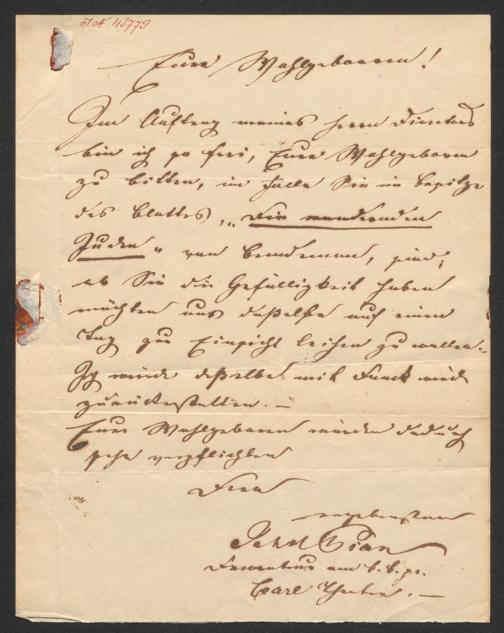 I.N. 48779
Euer Wohlgeboren!
Im Auftrag meines Herrn Direktors
bin ich so frei, Euer Wohlgeboren
zu bitten, im Falle Sie im Besitze
des Blattes, „Die trauernden
Juden" von Bendemann, sind,
ob Sie die Gefälligkeit haben
möchten uns daßelbe auf einen
Tag zur Einsicht leihen zu wollen.
Ich würde daßelbe mit Dank
zurückerstatten. —
Euer Wohlgeboren würden dadurch
sehr verpflichten
Ihren
ergebensten
am k. k. pr.
Carl Theater. —